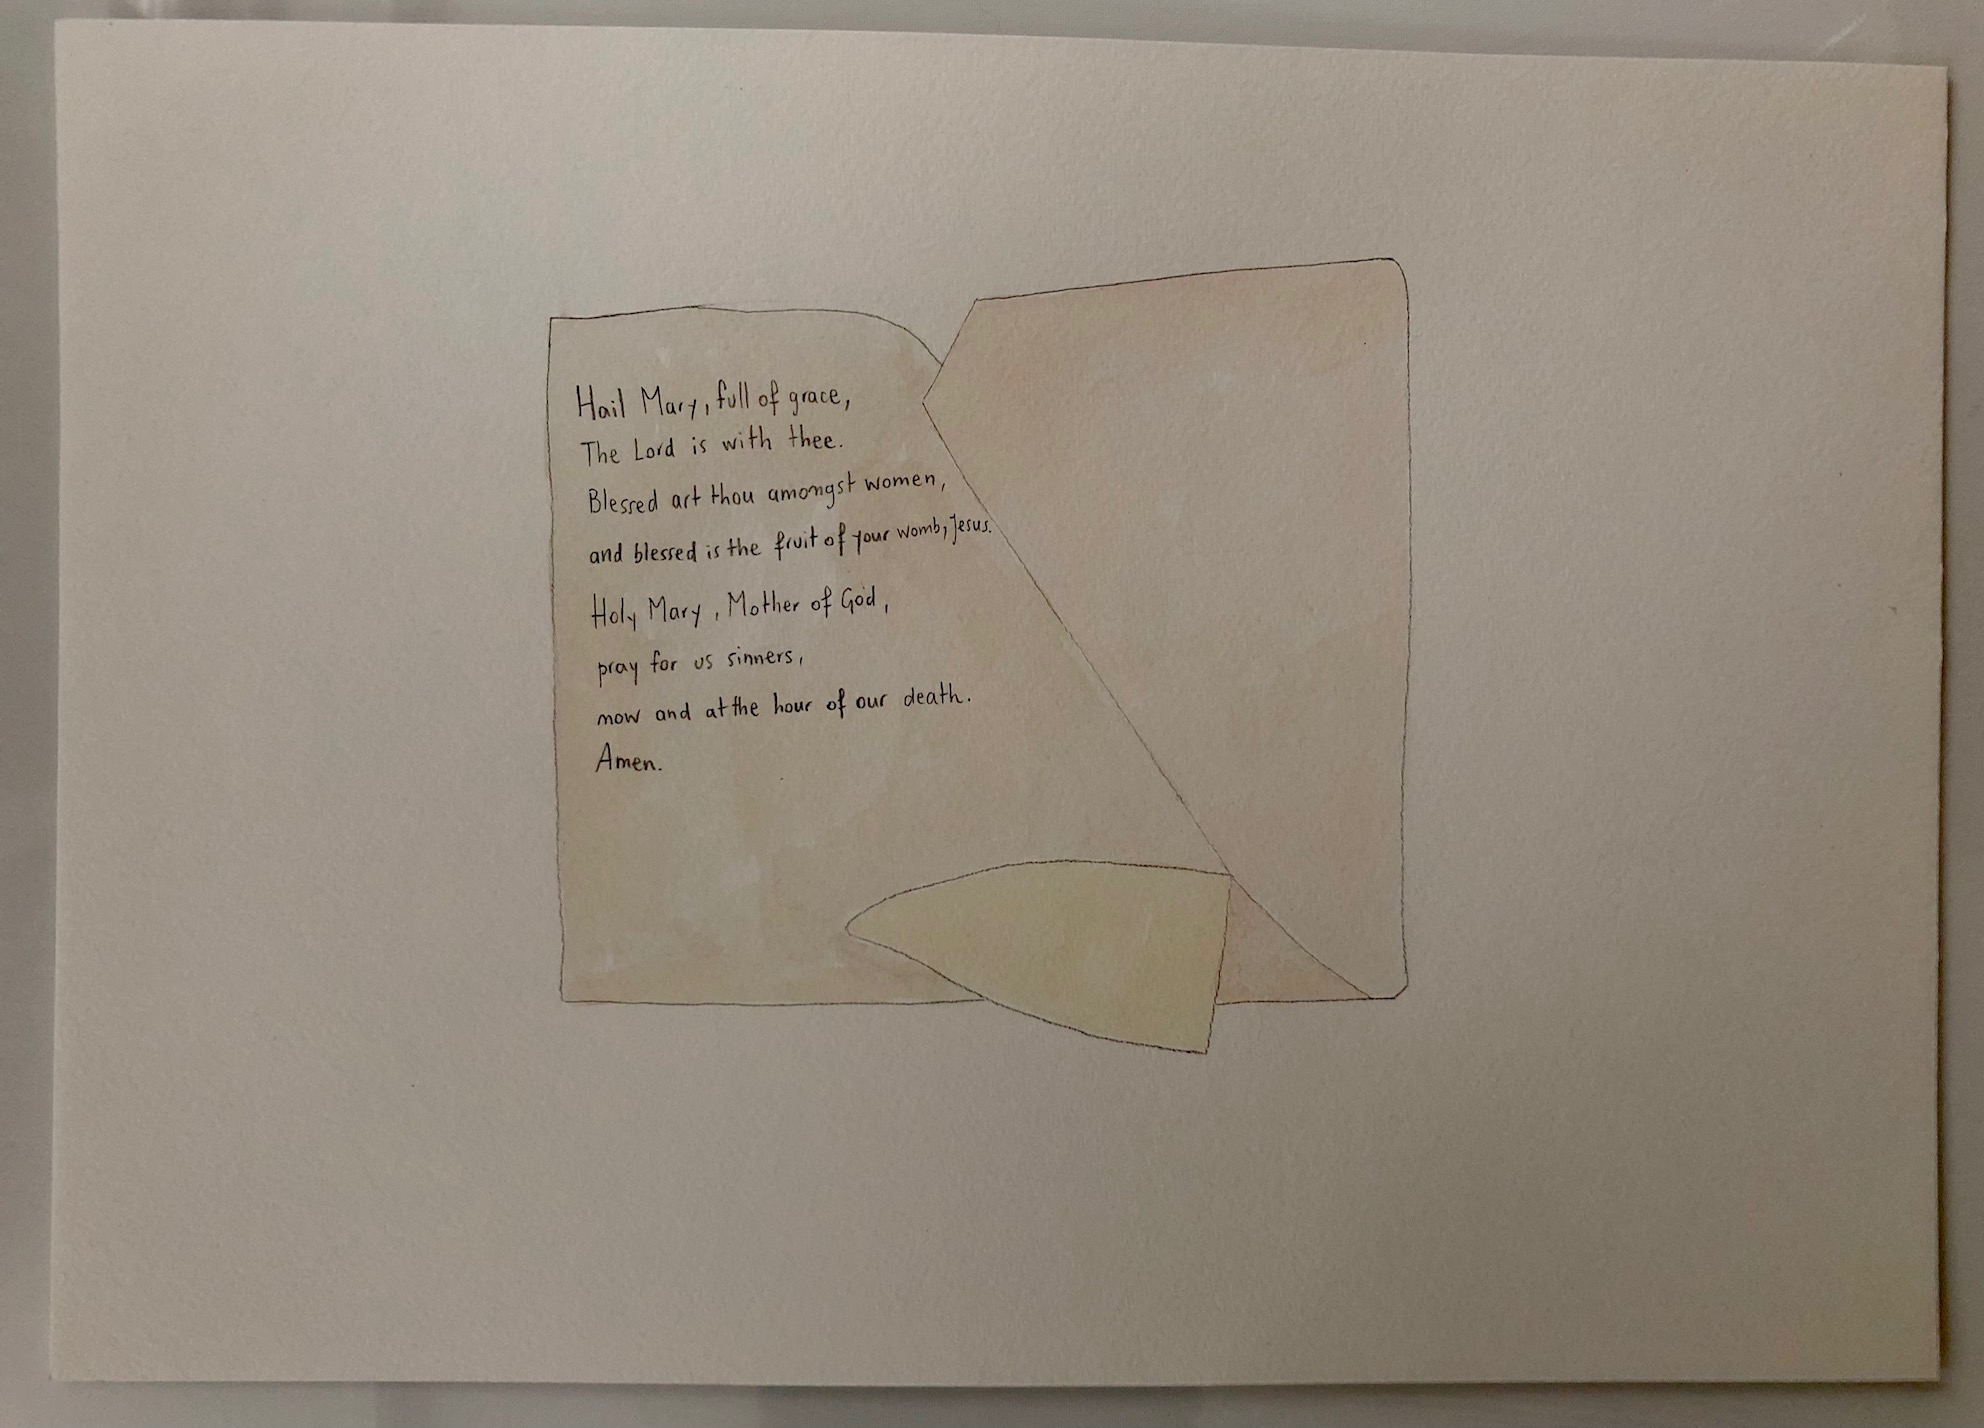 Hail Mary, full of grace,
The Lord is with thee.
Blessed art thou amongst women,
and blessed is the fruit of your womb, Jesus.
Holy Mary, Mother of God,
pray for us sinners,
now and at the hour of our death.
Amen.